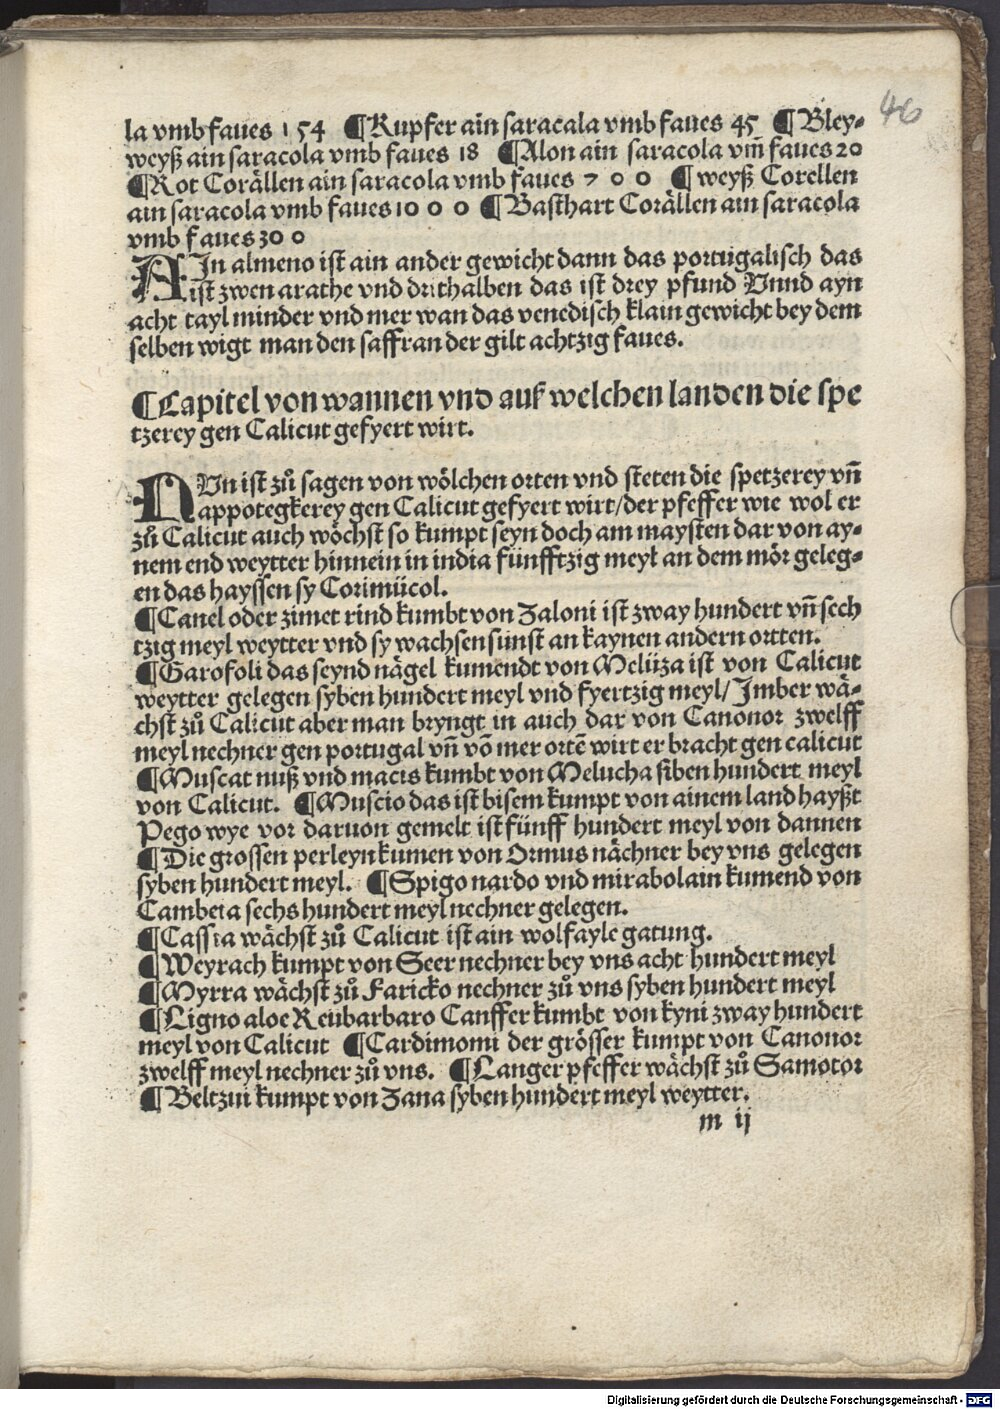 46
la vmb faues 154 ¶Kupfer ain saracala vmb faues 45 ¶Bley⸗
weyß ain saracola vmb faues 18 ¶Alon ain saracola vm̄ faues 20
¶Rot Corällen ain saracola vmb faues 700 ¶weyß Corellen
ain saracola vmb faues 1000 ¶Basthart Corällen ain saracola
vmb faues 300
AIn almeno ist ain ander gewicht dann das portugalisch das
ist zwen arathe vnd drithalben das ist drey pfund Vnnd ayn
acht tayl minder vnd mer wan das venedisch klain gewicht bey dem
selben wigt man den saffran der gilt achtzig faues.
¶Capitel von wannen vnd auß welchen landen die spe
tzerey gen Calicut gefyert wirt.
NVn ist zů sagen von wölchen orten vnd steten die spetzerey vn̄
appotegkerey gen Calicut gefyert wirt/der pfeffer wie wol er
zů Calicut auch wöchst so kumpt seyn doch am maysten dar von ay⸗
nem end weytter hinnein in india fünfftzig meyl an dem mör geleg⸗
en das hayssen sy Corimücol.
¶Canel oder zimet rind kumbt von Zaloni ist zway hundert vn̄ sech
tzig meyl weytter vnd sy wachsen sunst an kaynen andern ortten.
¶Garofoli das seynd nägel kumendt von Melüza ist von Calicut
weytter gelegen syben hundert meyl vnd fyertzig meyl/Imber wä⸗
chst zů Calicut aber man bryngt in auch dar von Canonor zwelff
meyl nechner gen portugal vn̄ vō mer ortē wirt er bracht gen calicut
¶Muscat nuß vnd macis kumbt von Melucha siben hundert meyl
von Calicut. ¶Muscio das ist bisem kumpt von ainem land hayßt
Pego wye vor daruon gemelt ist fünff hundert meyl von dannen
¶Die grossen perleyn kumen von Ormus nächner bey vns gelegen
syben hundert meyl. ¶Spigo nardo vnd mirabolain kumend von
Cambeta sechs hundert meyl nechner gelegen.
¶Cassia wächst zů Calicut ist ain wolfayle gatung.
¶Weyrach kumpt von Seer nechner bey vns acht hundert meyl
¶Myrra wächst zů Faricko nechner zů vns syben hundert meyl
¶Ligno aloe Reübarbaro Canffer kumbt von kyni zway hundert
meyl von Calicut ¶Cardimomi der grösser kumpt von Canonor
zwelff meyl nechner zů vns. ¶Langer pfeffer wächst zů Samotor
¶Beltzui kumpt von Zana syben hundert meyl weytter.
m ij
Digitalisierung gefördert durch die Deutsche Forschungsgemeinschaft - DFG